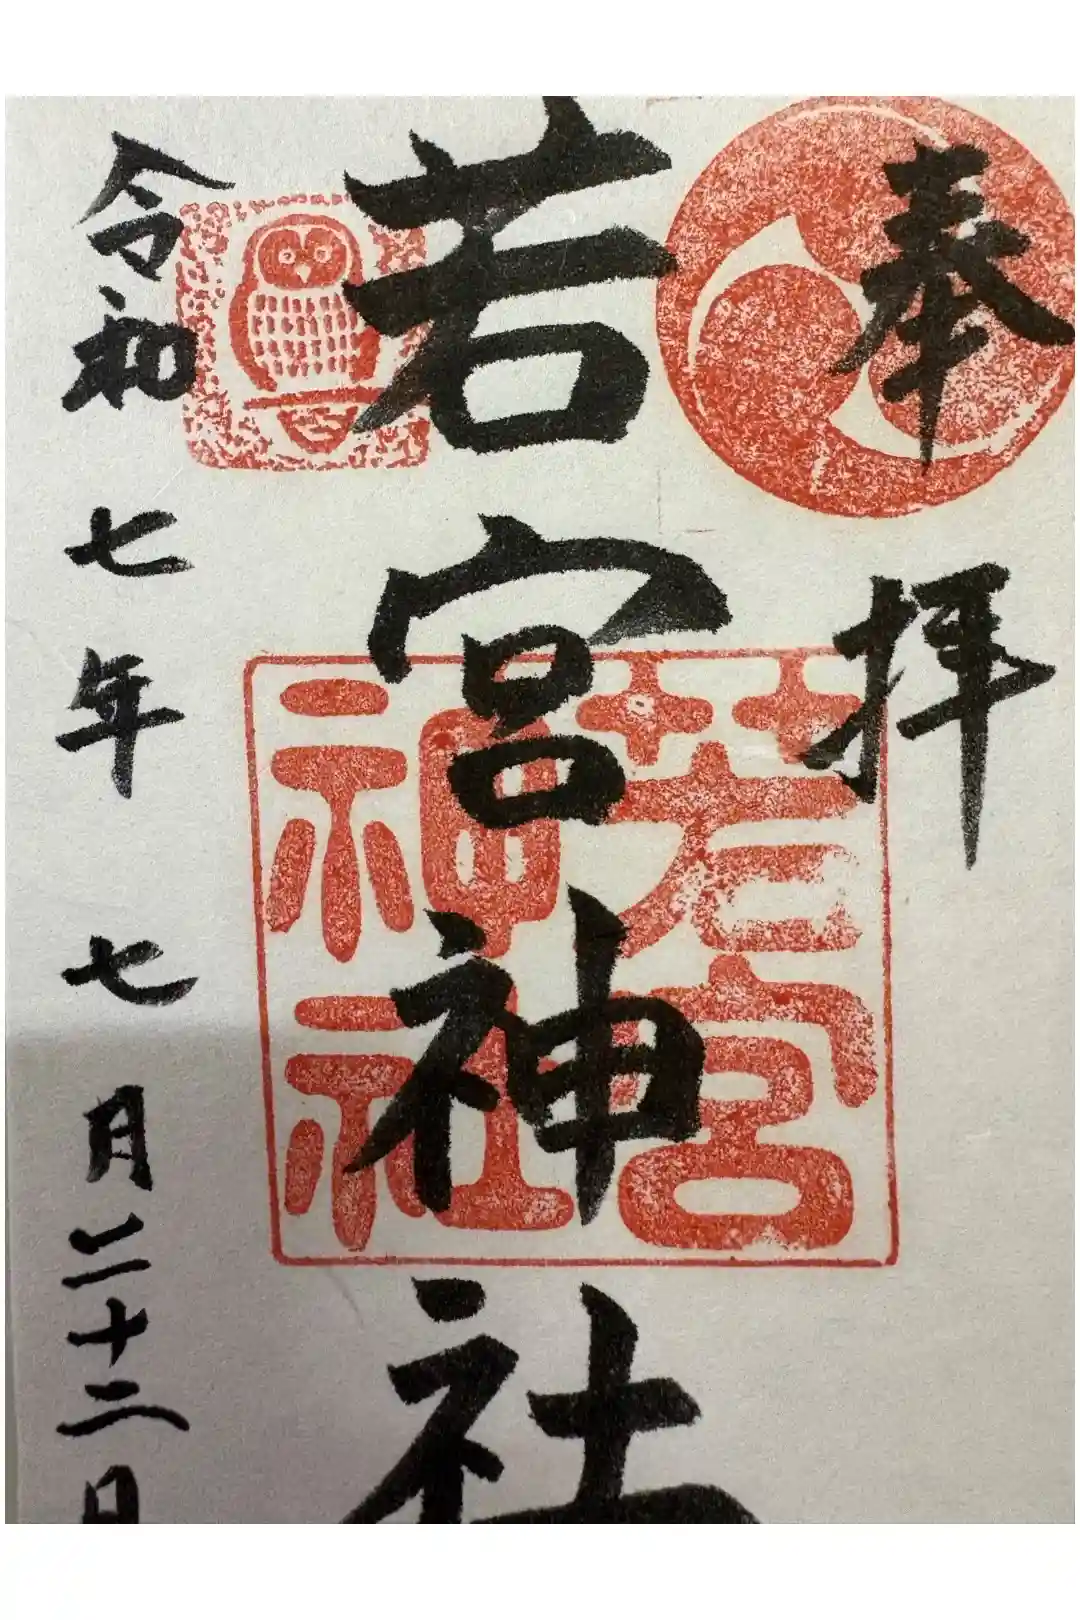 奉拝
若宮神社
令和七年七月二十二日
若宮
神社